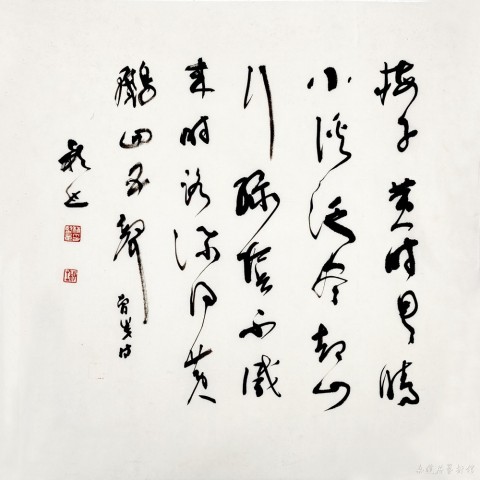 梅子黄时日日晴
小溪泛尽却山
行绿阴不减
来时路添得黄
鹂四五聲
曾几诗